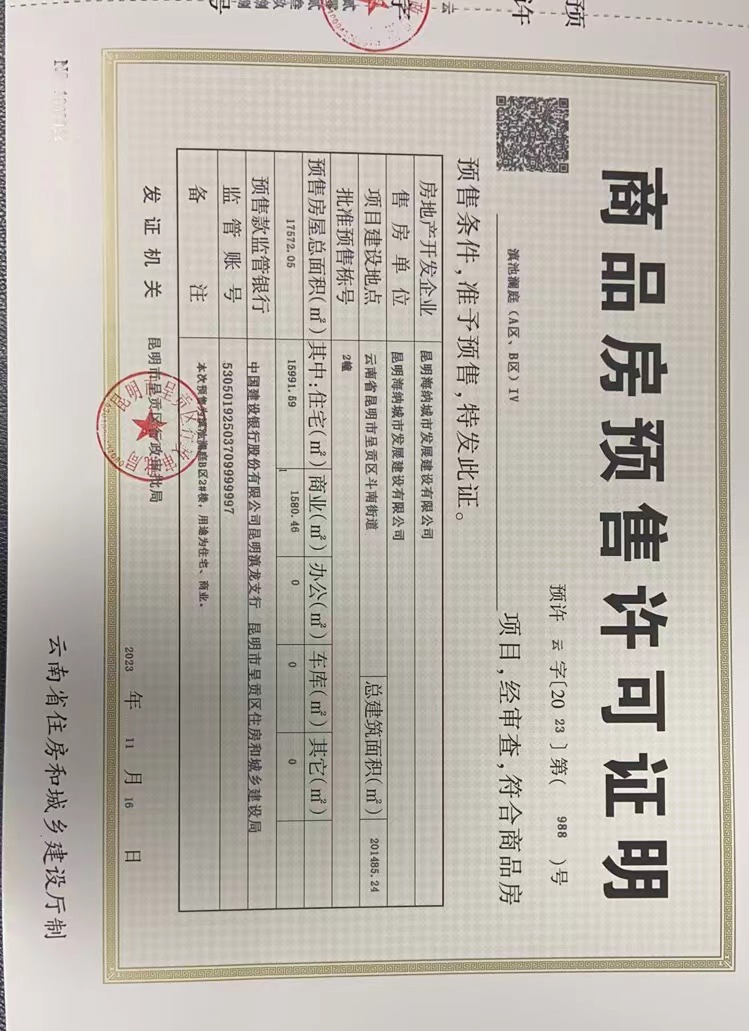 商品房预售许可证明
预许 云 字[2023]第( 988 )号
滇池澜庭（A区、B区）IV 项目,经审查,符合商品房
预售条件,准予预售,特发此证。
房地产开发企业 昆明海纳城市发展建设有限公司
售房单位 昆明海纳城市发展建设有限公司
项目建设地点 云南省昆明市呈贡区斗南街道 总建筑面积(㎡) 201485.24
批准预售栋号 2幢
预售房屋总面积(㎡) 其中:住宅(㎡) 商业(㎡) 办公(㎡) 车库(㎡) 其它(㎡)
17572.05 15991.59 1580.46 0 0 0
预售款监管银行 中国建设银行股份有限公司昆明滇龙支行 昆明市呈贡区住房和城乡建设局
监管账号 53050192503709999997
备注 本次预售为滇池澜庭B区2#楼，用途为住宅、商业。
发证机关 昆明市呈贡区行政审批局
2023 年 11 月 16 日
云南省住房和城乡建设厅制